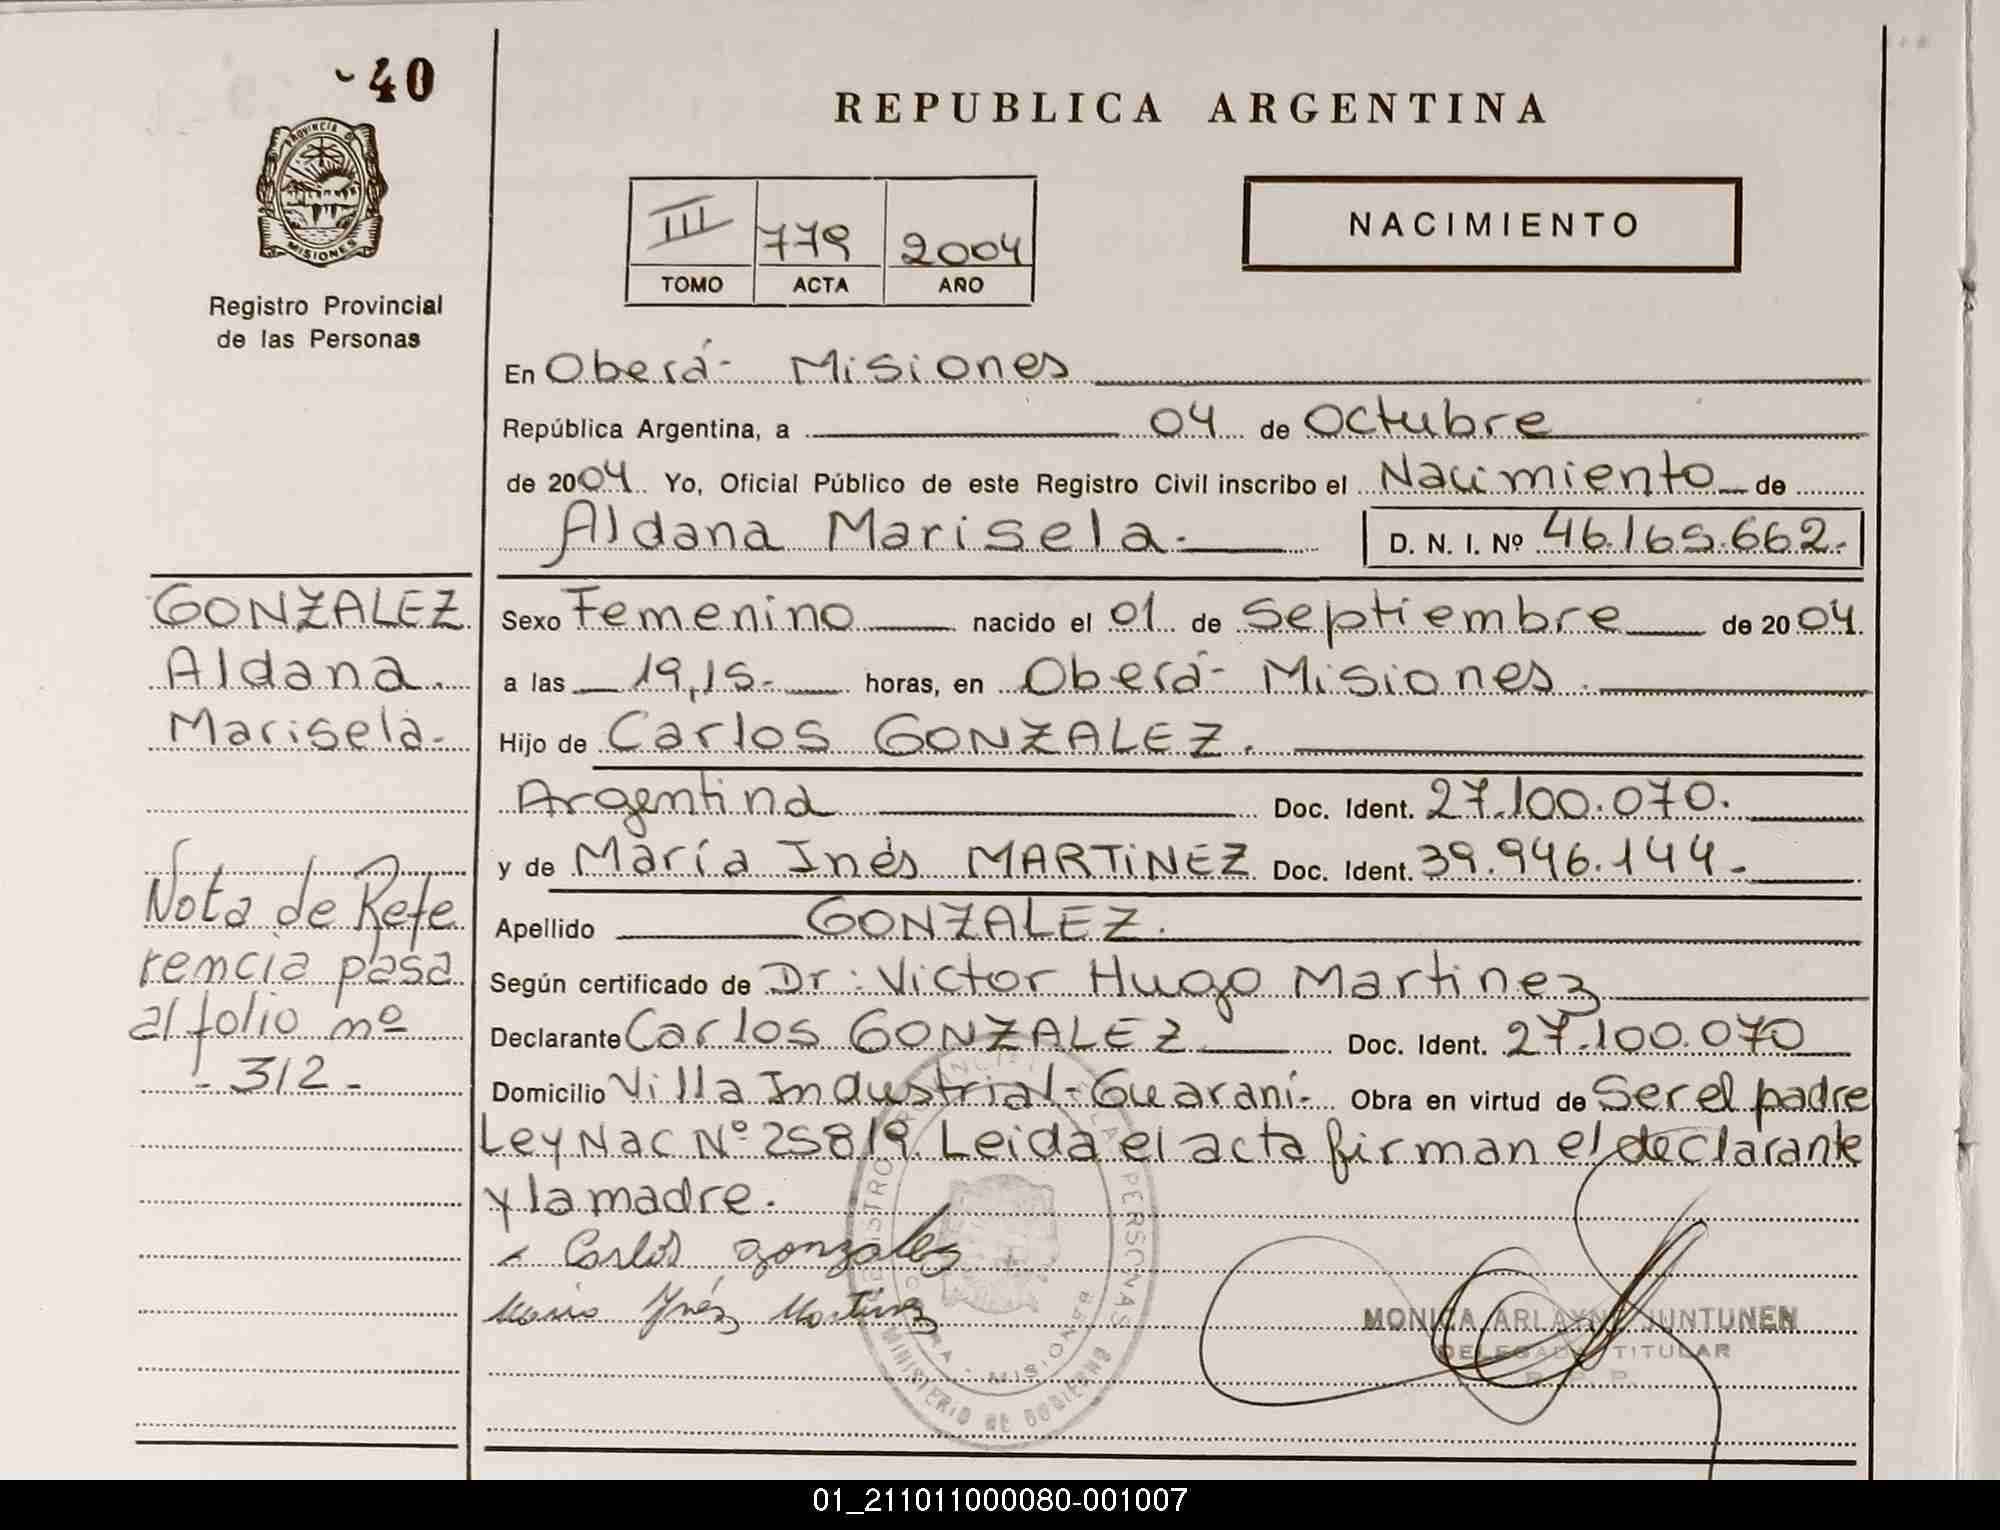 40
PROVINCIA DE
MISIONES
Registro Provincial
de las Personas
REPUBLICA ARGENTINA
III 779 2004
TOMO ACTA AÑO
NACIMIENTO
En Oberá- Misiones
República Argentina, a 04 de Octubre
de 2004 Yo, Oficial Público de este Registro Civil inscribo el Nacimiento de
Aldana Marisela.- D. N. I. Nº 46.165.662.-
GONZALEZ
Aldana
Marisela-
Nota de Refe
rencia pasa
al folio nº
- 312 -
Sexo Femenino nacido el 01 de Septiembre de 2004.
a las 19,15.- horas, en Oberá- Misiones.
Hijo de Carlos GONZALEZ.
Argentina Doc. Ident. 27.100.070.
y de María Inés MARTINEZ Doc. Ident. 39.946.144.-
Apellido GONZALEZ.
Según certificado de Dr: Victor Hugo Martinez
Declarante Carlos GONZALEZ Doc. Ident. 27.100.070
Domicilio Villa Industrial-Guaraní- Obra en virtud de Ser el padre
Ley Nac Nº 25819. Leida el acta firman el declarante
y la madre.
Carlos gonzales
Maria Inés Martinez
MINISTERIO DE GOBIERNO
PERSONAS
MISIONES
MONICA ARLAYNE JUNTUNEN
DELEGADA TITULAR
R. P. P.
01_211011000080-001007